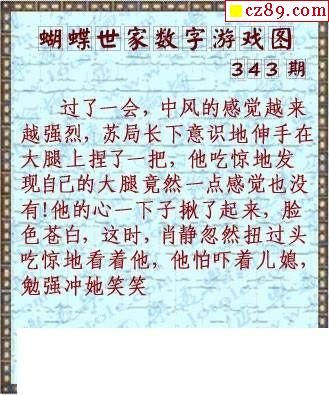 cz89.com
蝴蝶世家数字游戏图
343期
过了一会,中风的感觉越来
越强烈,苏局长下意识地伸手在
大腿上捏了一把,他吃惊地发
现自己的大腿竟然一点感觉也没
有!他的心一下子揪了起来,脸
色苍白,这时,肖静忽然扭过头
吃惊地看着他,他怕吓着儿媳,
勉强冲她笑笑